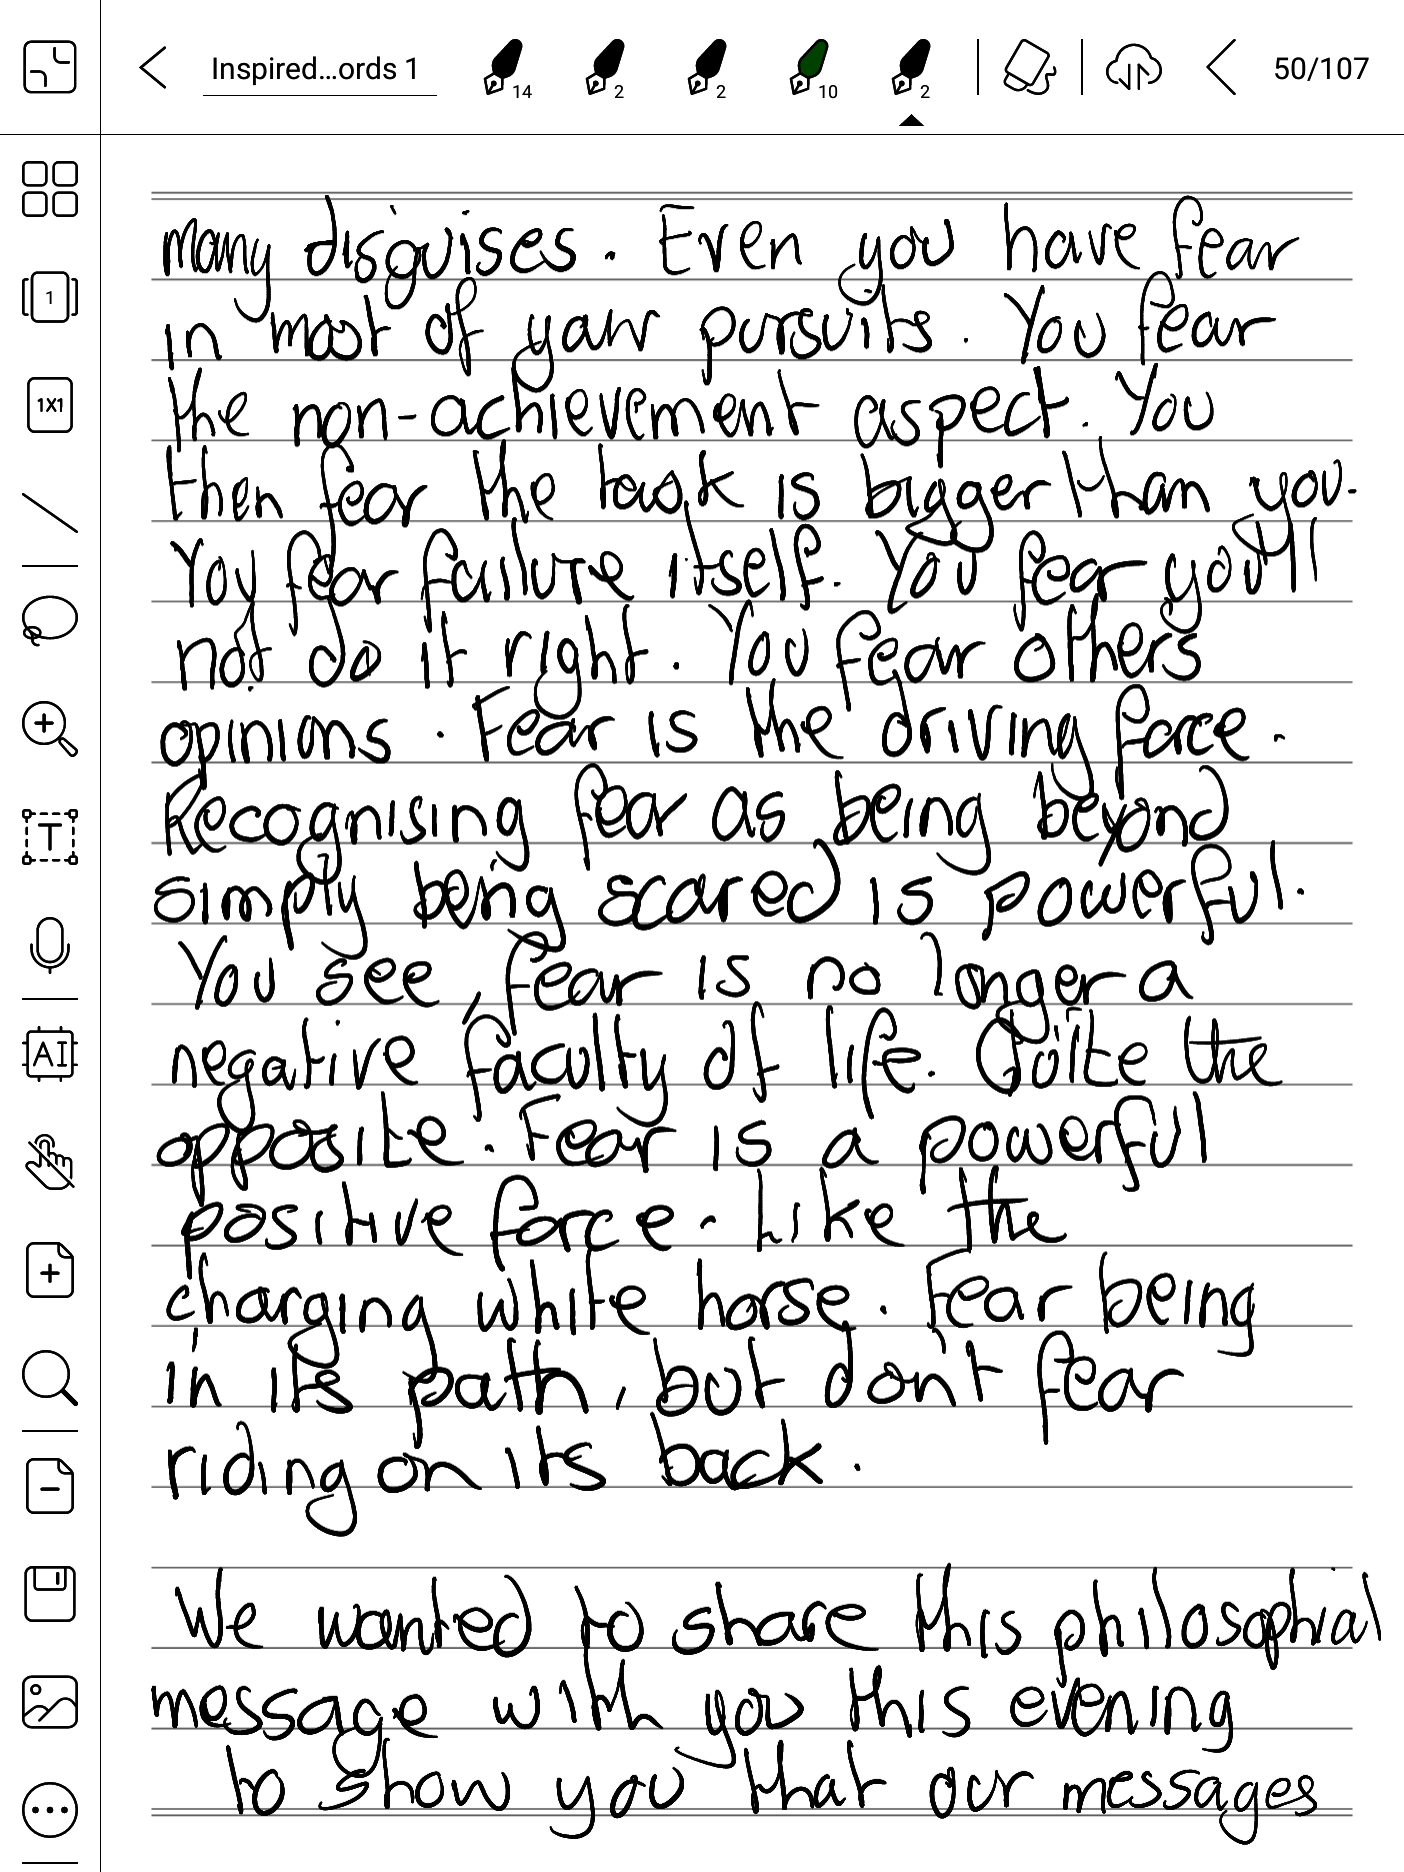 Inspired...ords 1
14
2
2
10
2
50/107
1
1X1
T
AI
many disguises. Even you have fear
in most of your pursuits. You fear
the non-achievement aspect. You
then fear the task is bigger than you.
You fear failure itself. You fear you'll
not do it right. You fear others
opinions. Fear is the driving force.
Recognising fear as being beyond
simply being scared is powerful.
You see, fear is no longer a
negative faculty of life. Quite the
opposite. Fear is a powerful
positive force. Like the
charging white horse. Fear being
in its path, but don't fear
riding on its back.
We wanted to share this philosophial
message with you this evening
to show you that our messages